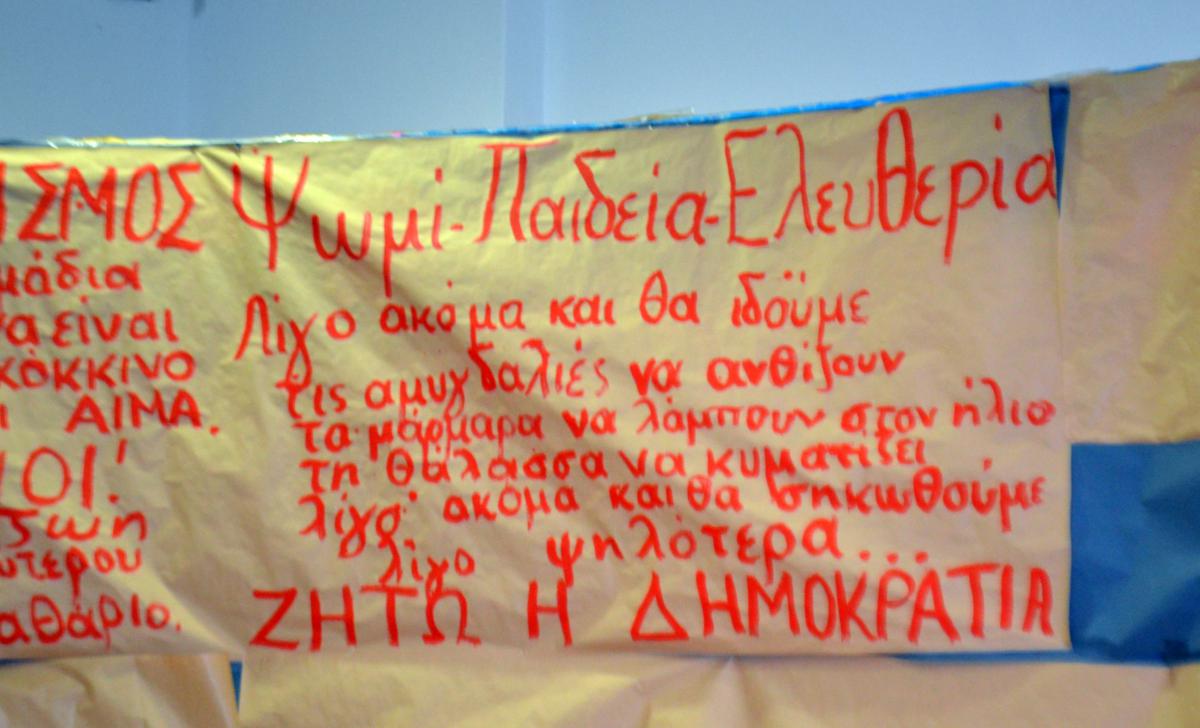 ΙΣΜΟΣ
μάδια
να είναι
κόκκινο
ΑΙΜΑ.
ΙΟΙ!
ζωή
υτερου
αθάριο.
Ψωμί-Παιδεία-Ελευθερία
Λίγο ακόμα και θα ιδούμε
τις αμυγδαλιές να ανθίζουν
τα μάρμαρα να λάμπουν στον ήλιο
τη θάλασσα να κυματίζει
λίγο ακόμα και θα σηκωθούμε
λίγο ψηλότερα...
ΖΗΤΩ Η ΔΗΜΟΚΡΑΤΙΑ